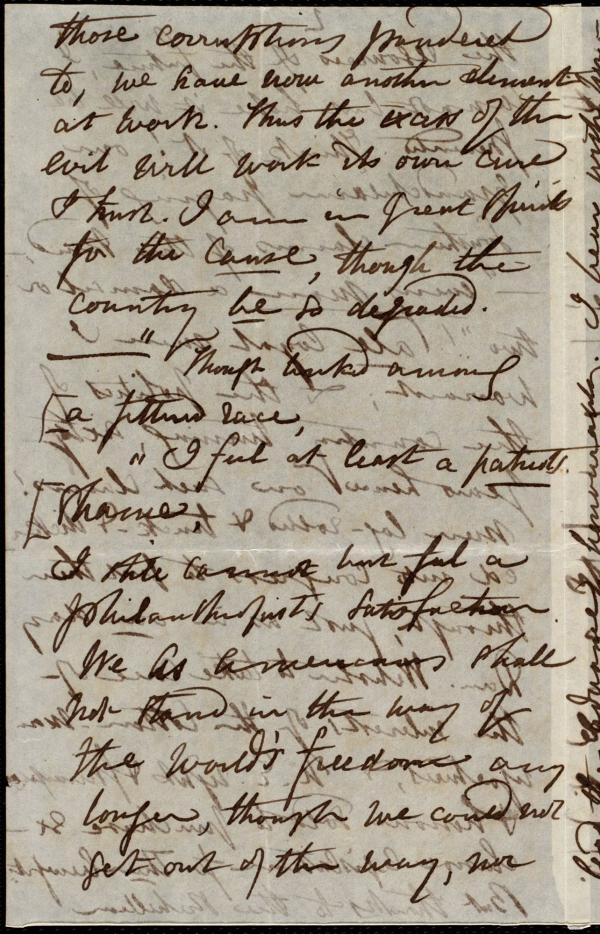 those corruptions pandered
to, we have now another element
at work. Thus the excess of the
evil will work its own cure
I trust. I am in great spirits
for the cause, though the
country be so degraded.
" Though linked among
[a fettered race,
" I feel at least a patriots
[shame,"
I still cannot but feel a
philanthropist's satisfaction
We as Americans shall
not stand in the way of
the world's freedom any
longer though we could not
get out of the way, nor